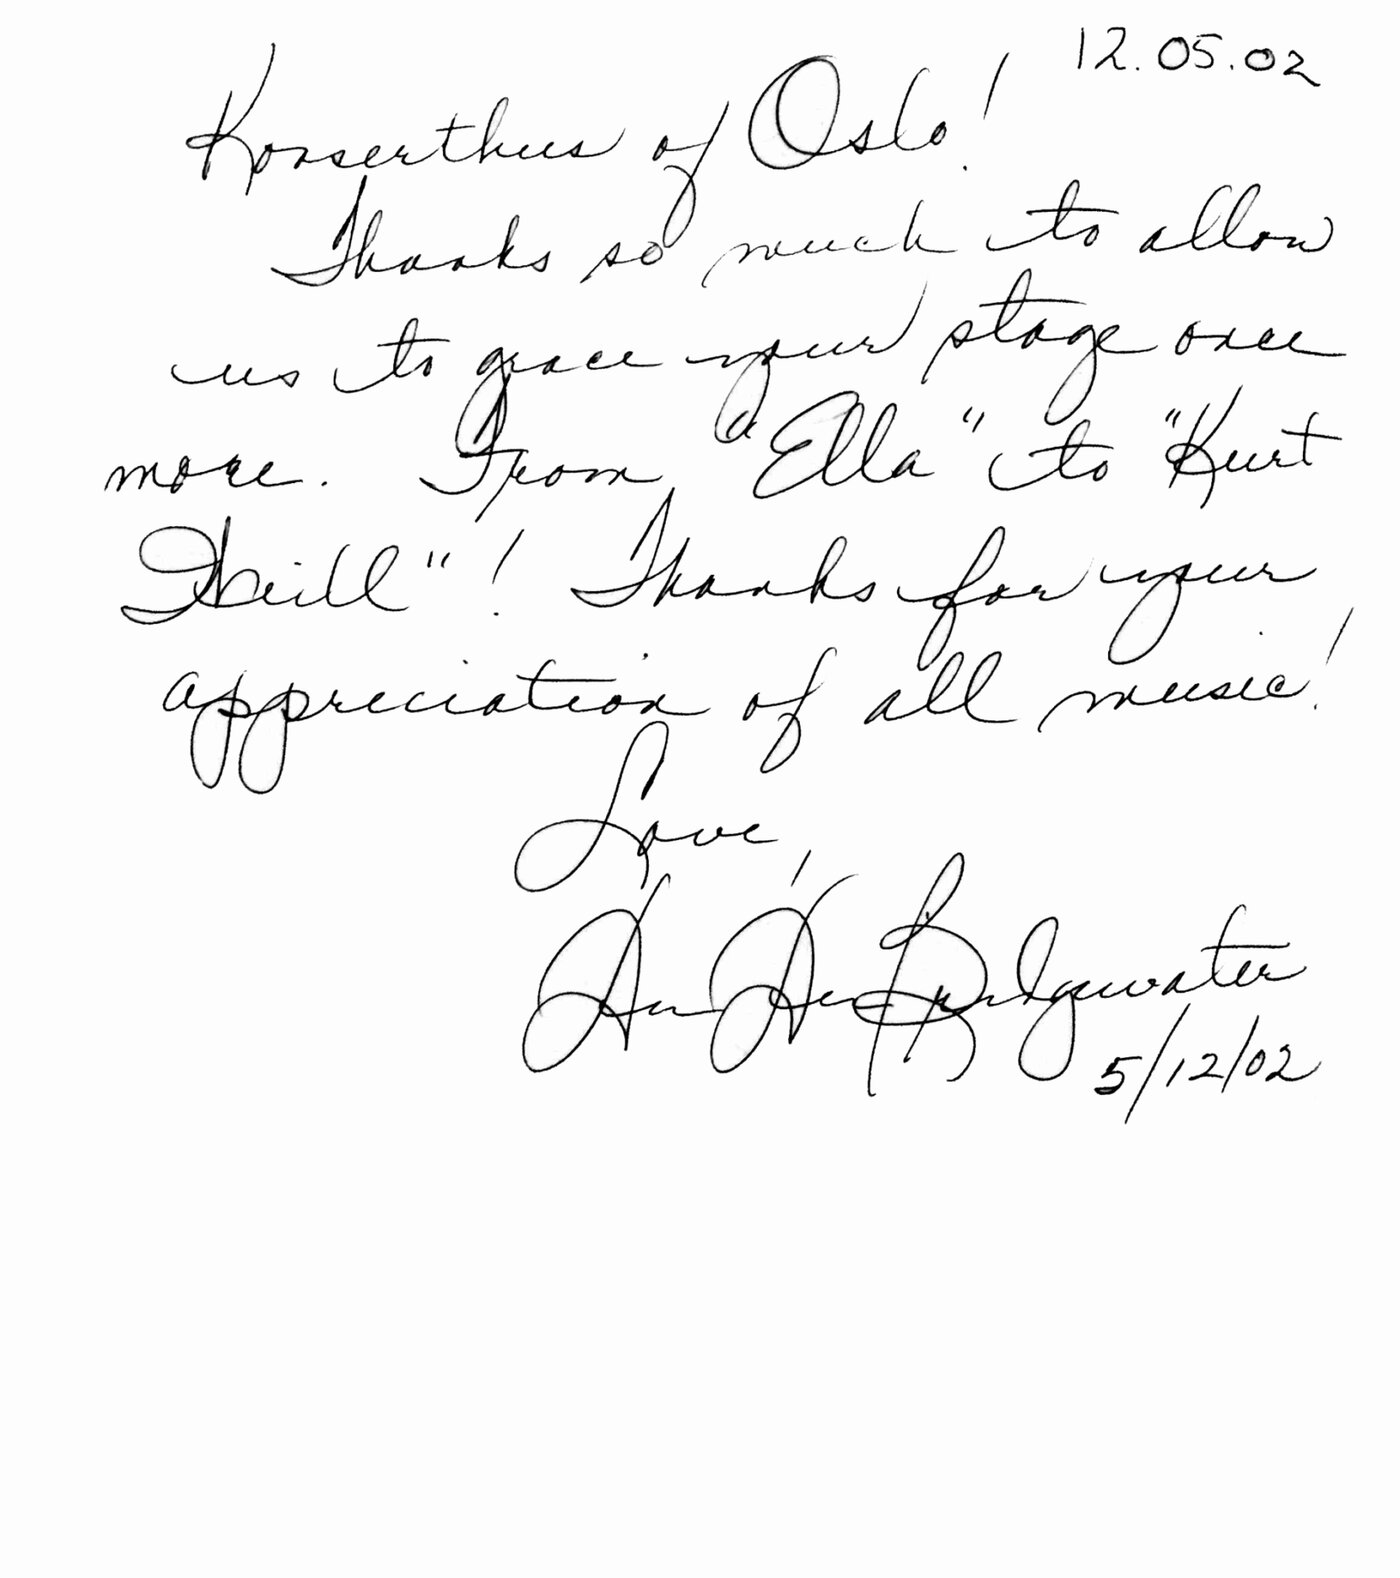 12.05.02
Konserthus of Oslo!
Thanks so much to allow
us to grace your stage once
more. From "Ella" to "Kurt
Weill"! Thanks for your
appreciation of all music!
Love,
Dee Dee Bridgewater
5/12/02